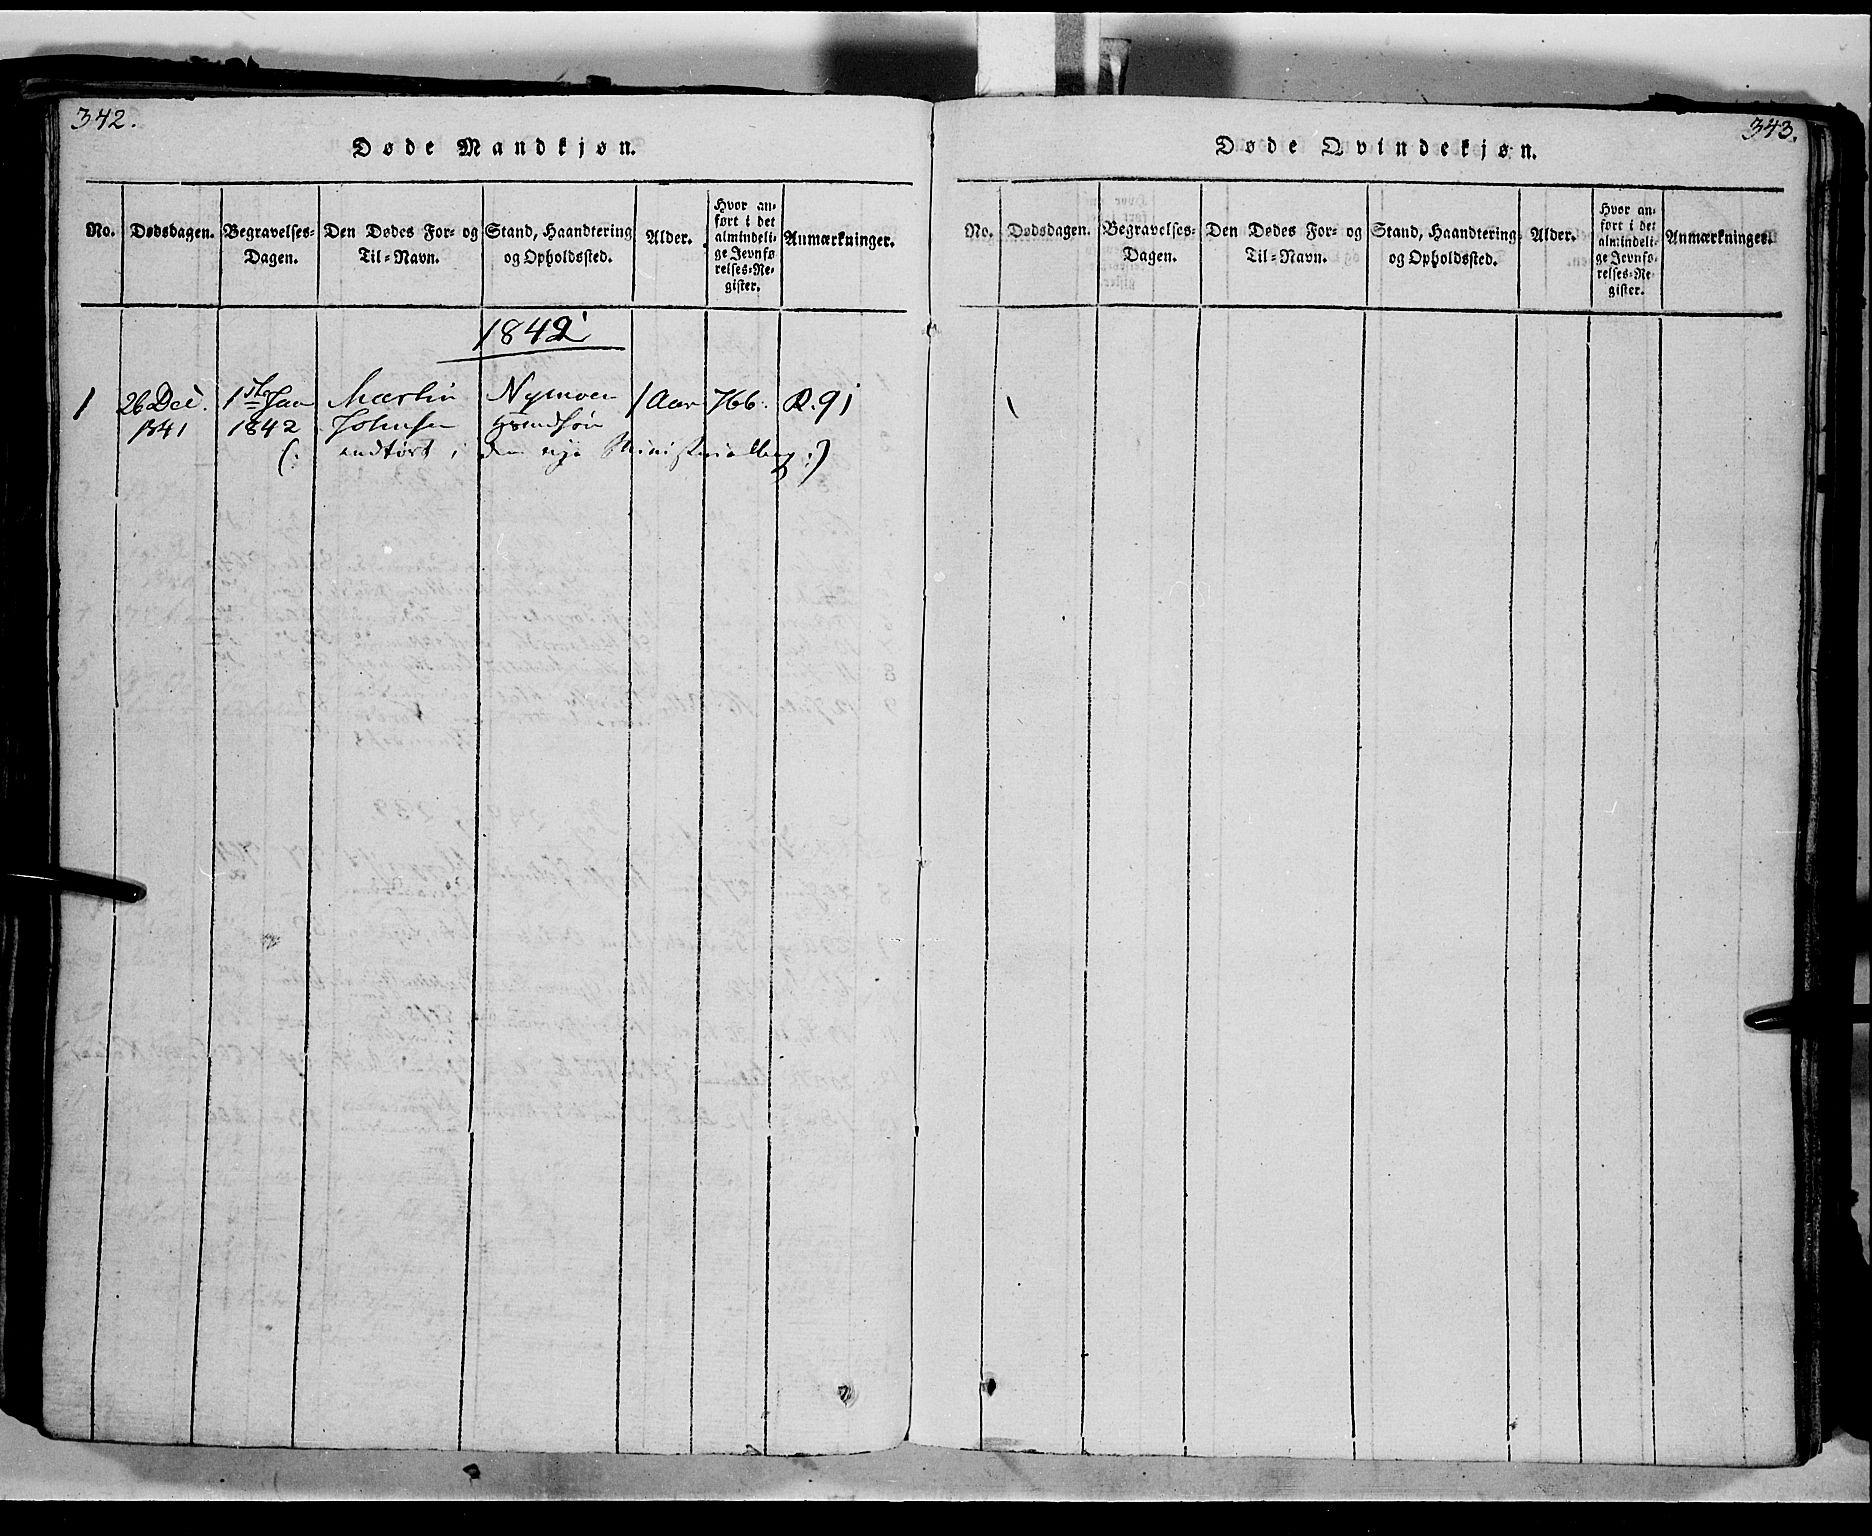 342.
Døde Mandkjøn.
No. Dødsdagen. Begravelses-Dagen. Den Dødes For- og Til-Navn. Stand, Haandtering og Opholdssted. Alder. Hvor anført i det almindelige Jevnførelses-Register. Anmærkninger.
1842
1 26 Dec. 1ste Jan Martin Nymoen 1 Aar 766. R. 91
1841 1842 Johnsen
(: indført i den nye Ministerialbog :)
343.
Døde Qvindekjøn.
No. Dødsdagen. Begravelses-Dagen. Den Dødes For- og Til-Navn. Stand, Haandtering og Opholdssted. Alder. Hvor anført i det almindelige Jevnførelses-Register. Anmærkninger.